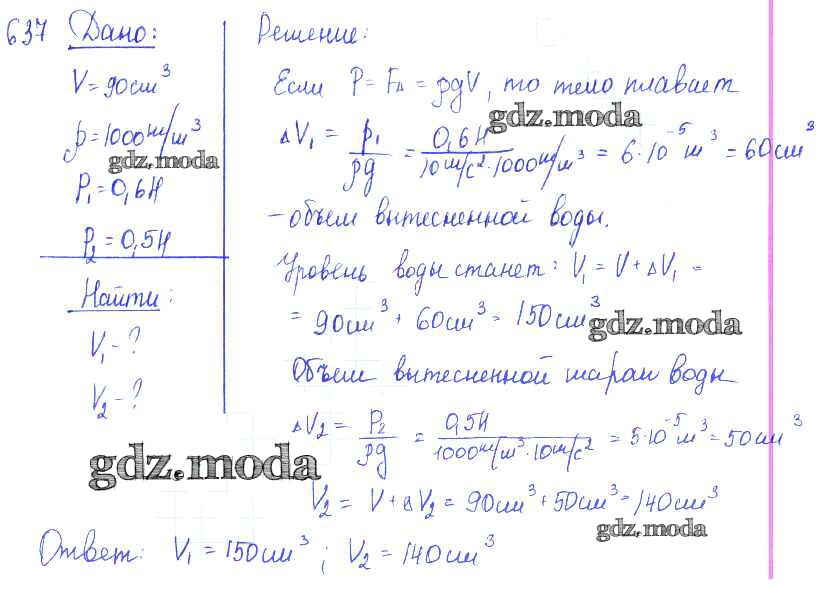 637 Дано:
V=90см³
ρ=1000кг/м³
gdz.moda
P₁=0,6Н
P₂=0,5Н
Найти:
V₁-?
V₂-?
gdz.moda
Решение:
Если P=Fₐ=ρgV, то тело плавает
gdz.moda
ΔV₁ = P₁/ρg = 0,6Н/10м/с²·1000кг/м³ = 6·10⁻⁵м³ = 60см³
-объем вытесненной воды.
Уровень воды станет: V₁=V+ΔV₁ =
= 90см³ + 60см³ = 150см³
gdz.moda
Объем вытесненной шаром воды
ΔV₂ = P₂/ρg = 0,5Н/1000кг/м³·10м/с² = 5·10⁻⁵м³ = 50см³
V₂ = V+ΔV₂ = 90см³+50см³=140см³
gdz.moda
Ответ: V₁=150см³; V₂=140см³